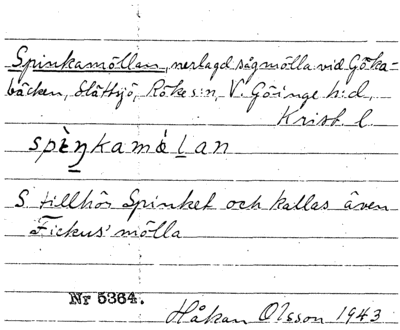 Spinkamöllan, nerlagd sågmölla vid Göka-
bäcken, Slättsjö, Röke s:n, V. Göinge h:d,
Krist. l
spìŋkamǿlan
S. tillhör Spinket och kallas även
Fickus' mölla
Nr 5364.
Håkan Olsson 1943